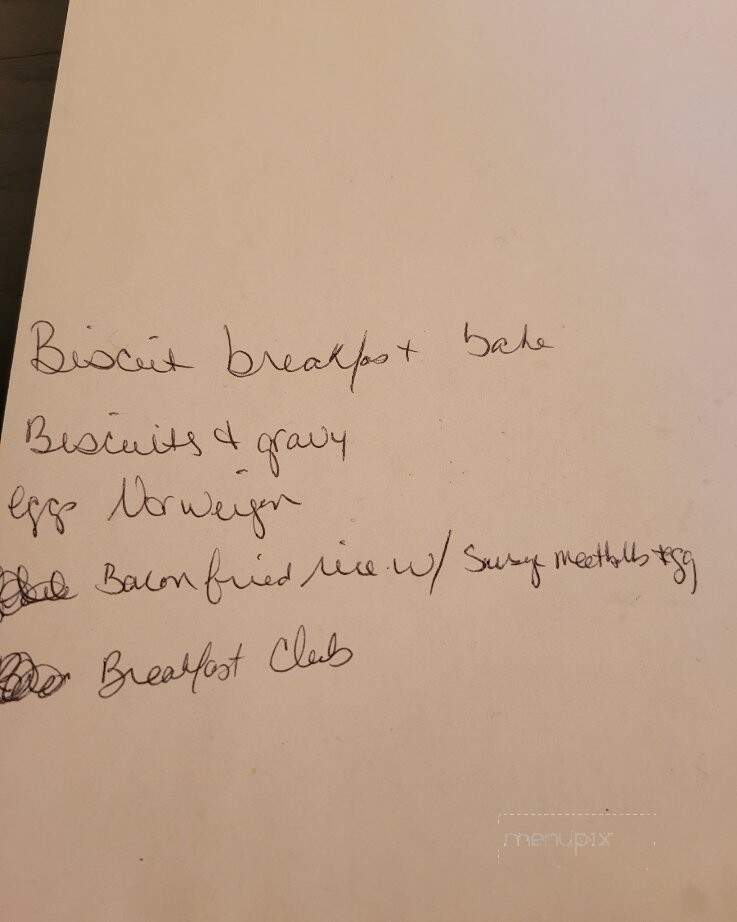 Biscuit breakfast bake
Biscuits & gravy
eggs Norweigen
Bacon fried rice w/ Sausage meatballs + egg
Breakfast Club
menupix